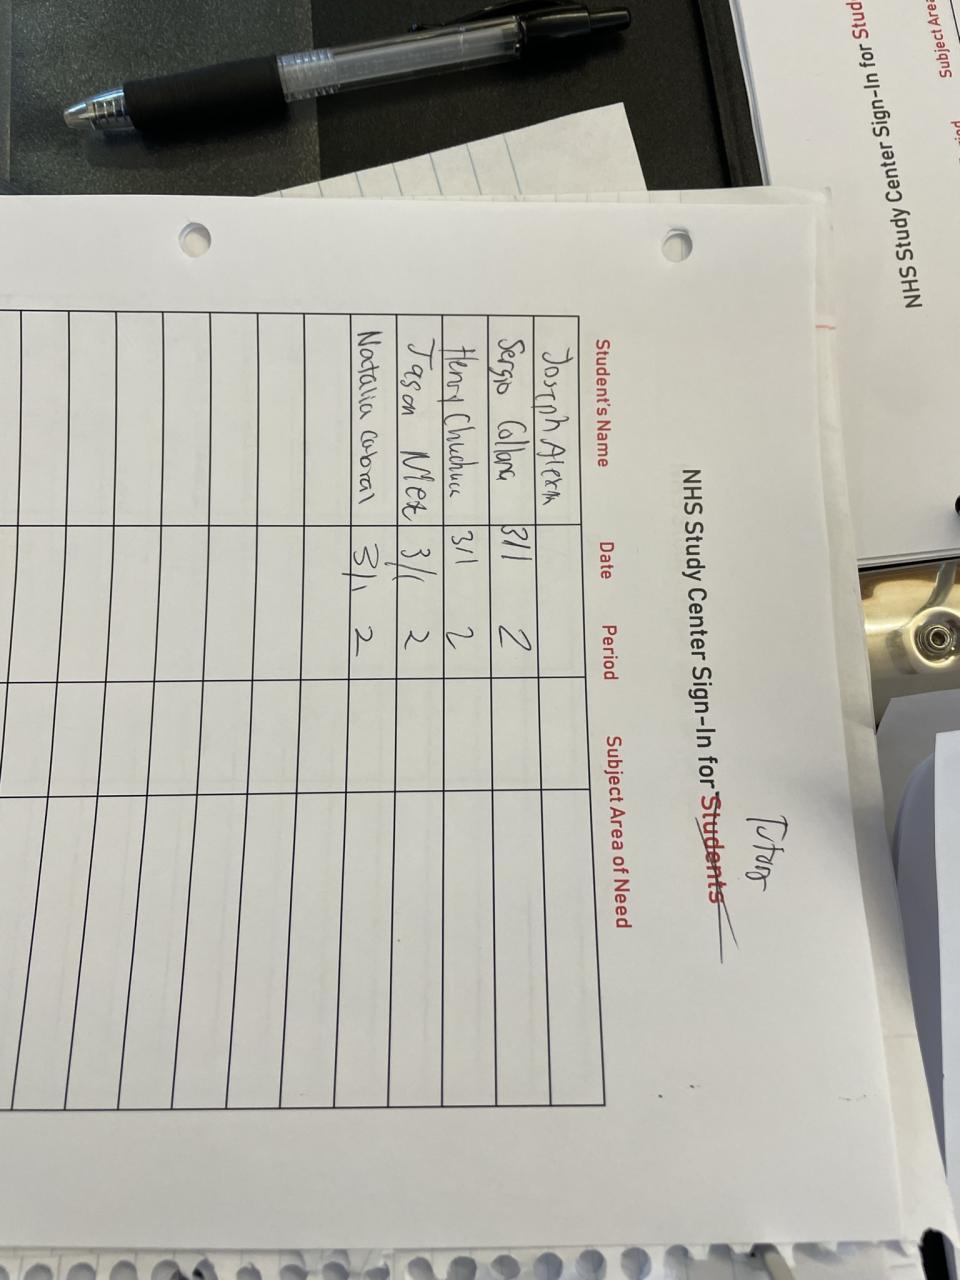 Tutors
NHS Study Center Sign-In for Students
Student's Name Date Period Subject Area of Need
Joseph
Sergio Collana 3/1 2
Henry 3/1 2
Jason Mex 3/1 2
Natalia Cabral 3/1 2
NHS Study Center Sign-In for Stud
Subject Area